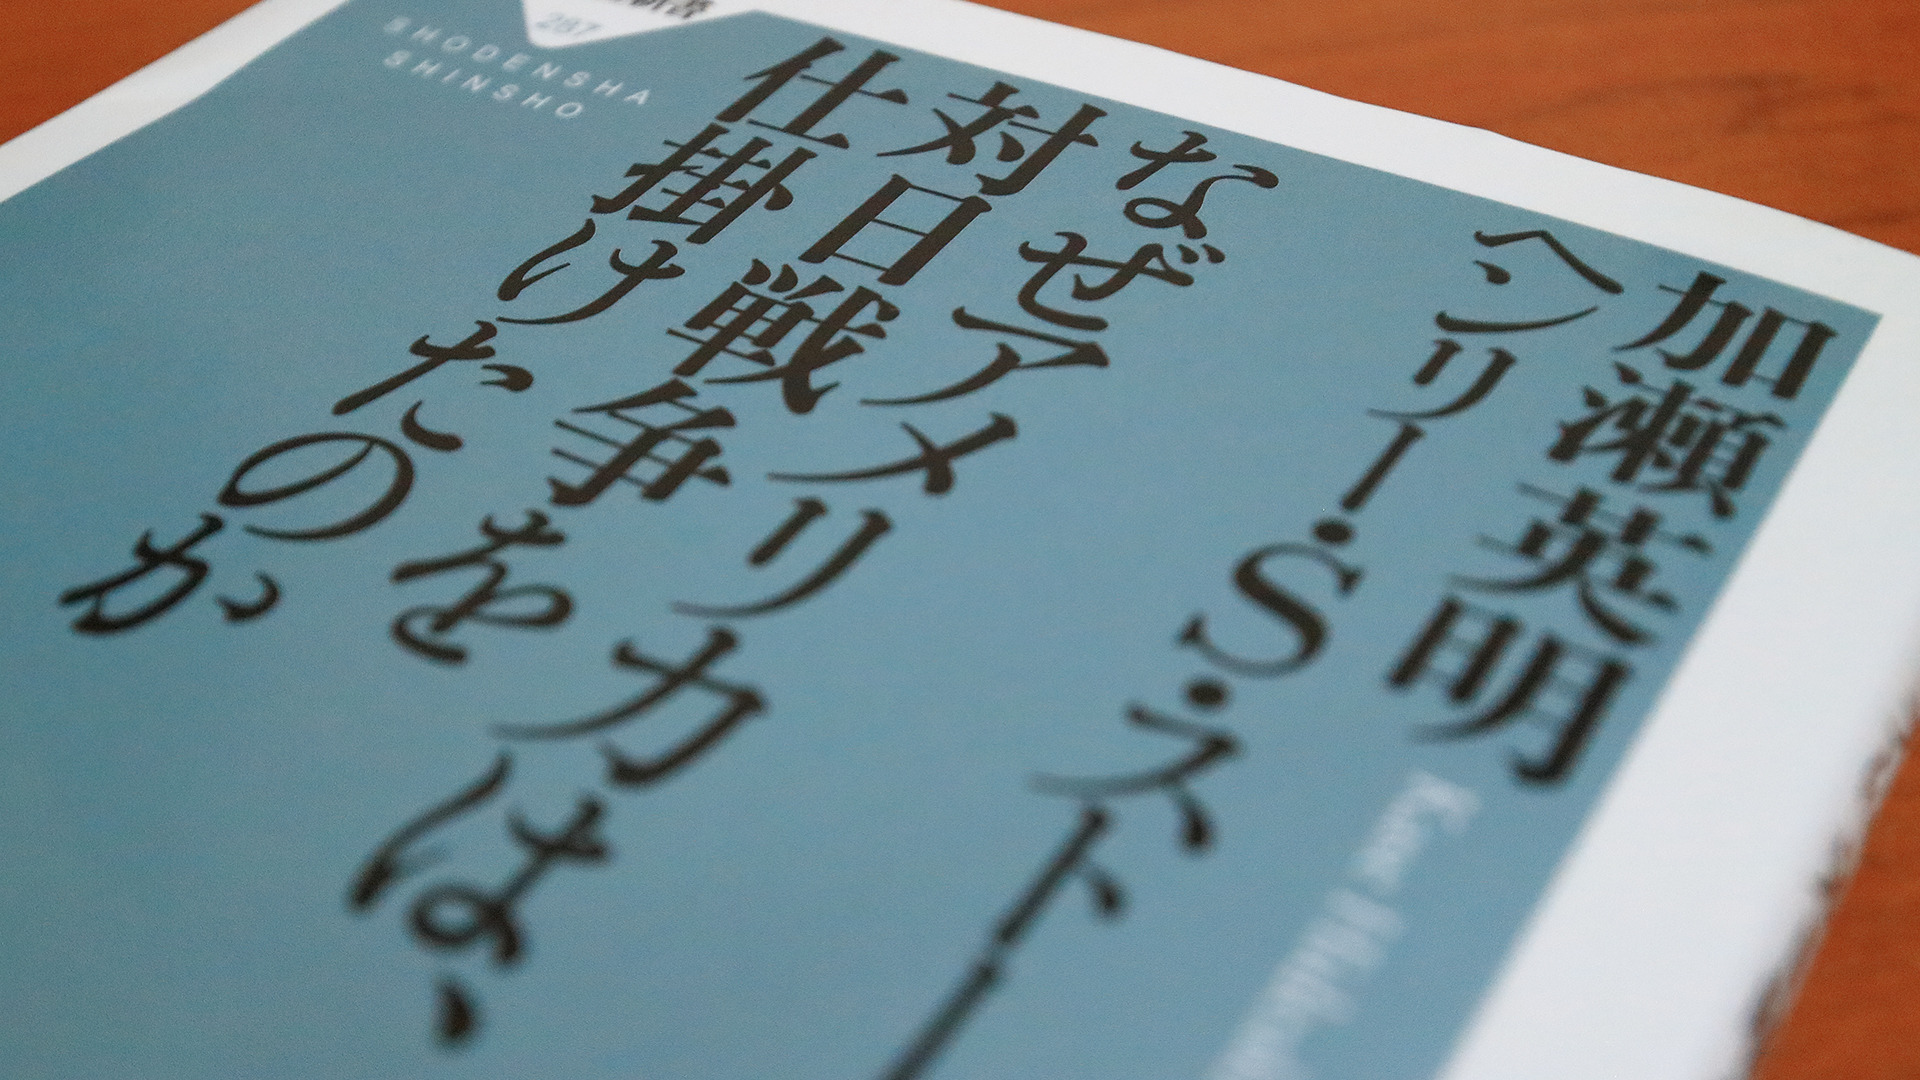 新書
287
SHODENSHA
SHINSHO
加瀬英明
ヘンリー・S・ストー
なぜアメリカは、
対日戦争を
仕掛けたのか